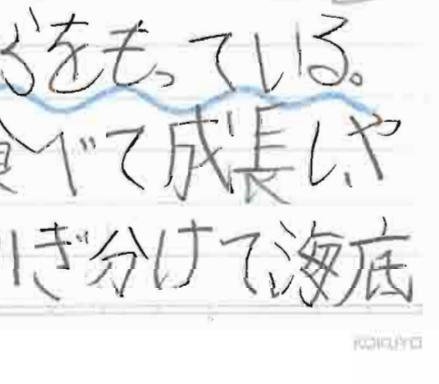 をもっている。
べて成長し、や
ぎ分けて海底
KOKUYO